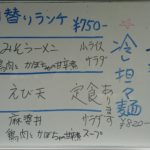 日替りランチ ¥750-
みそラーメン 小ライス
鶏肉とかぼちゃの甘辛煮 サラダ
えび天 定食
サラダ
麻婆丼
鶏肉とかぼちゃの甘辛煮 スープ
冷担々麺
あります
¥820-